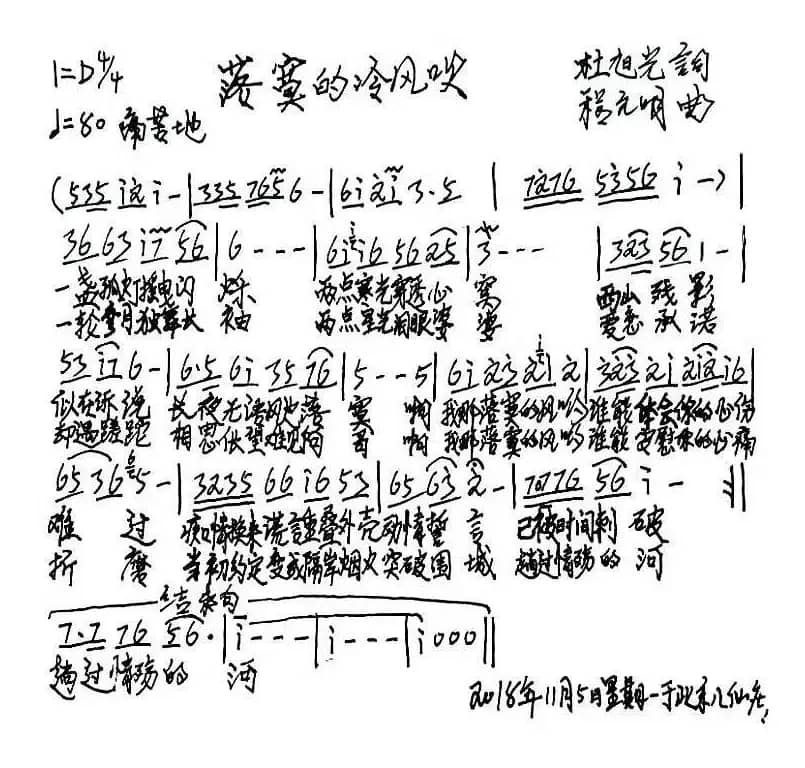 1=D 4/4 落寞的冷风吹 杜旭光 詞
♩=80 痛苦地 程元明 曲
(535 i2 i - | 335 765 6 - | 6i 2i 3·5 | 7276 5356 i -) |
36 63 i7 56 | 6 - - - | 6ii6 56 25 | 3 - - - | 323 56 1 - |
一盏孤灯摇曳闪 烁 两点寒光穿透心 窝 西山残影
一轮弯月独舞长 袖 两点星光润眼婆 娑 爱恋承诺
53 i7 6 - | 6·5 6i 35 76 | 5 - - 5 | 6i 23 2i 2 | 323 2i 2i2 i6 |
似在诉说 长夜无语风吹落 寞 啊 我那落寞的风哟 谁能体会你的心伤
却遇蹉跎 相思伙望难见向 啊 我那落寞的风哟 谁能安慰你的心痛
65 36 5 - | 3235 66 i6 53 | 65 63 2 - | 7276 56 i - :||
难 过 痴情换来谎言重叠外壳 动情誓言 已被时间刺 破
折 磨 当初约定变成隔岸烟火 突破围城 趟过情殇的 河
结束句
7·7 76 56· | i - - - | i - - - | i 0 0 0 ||
趟过情殇的 河
2018年11月5日星期一于北京八仙庄